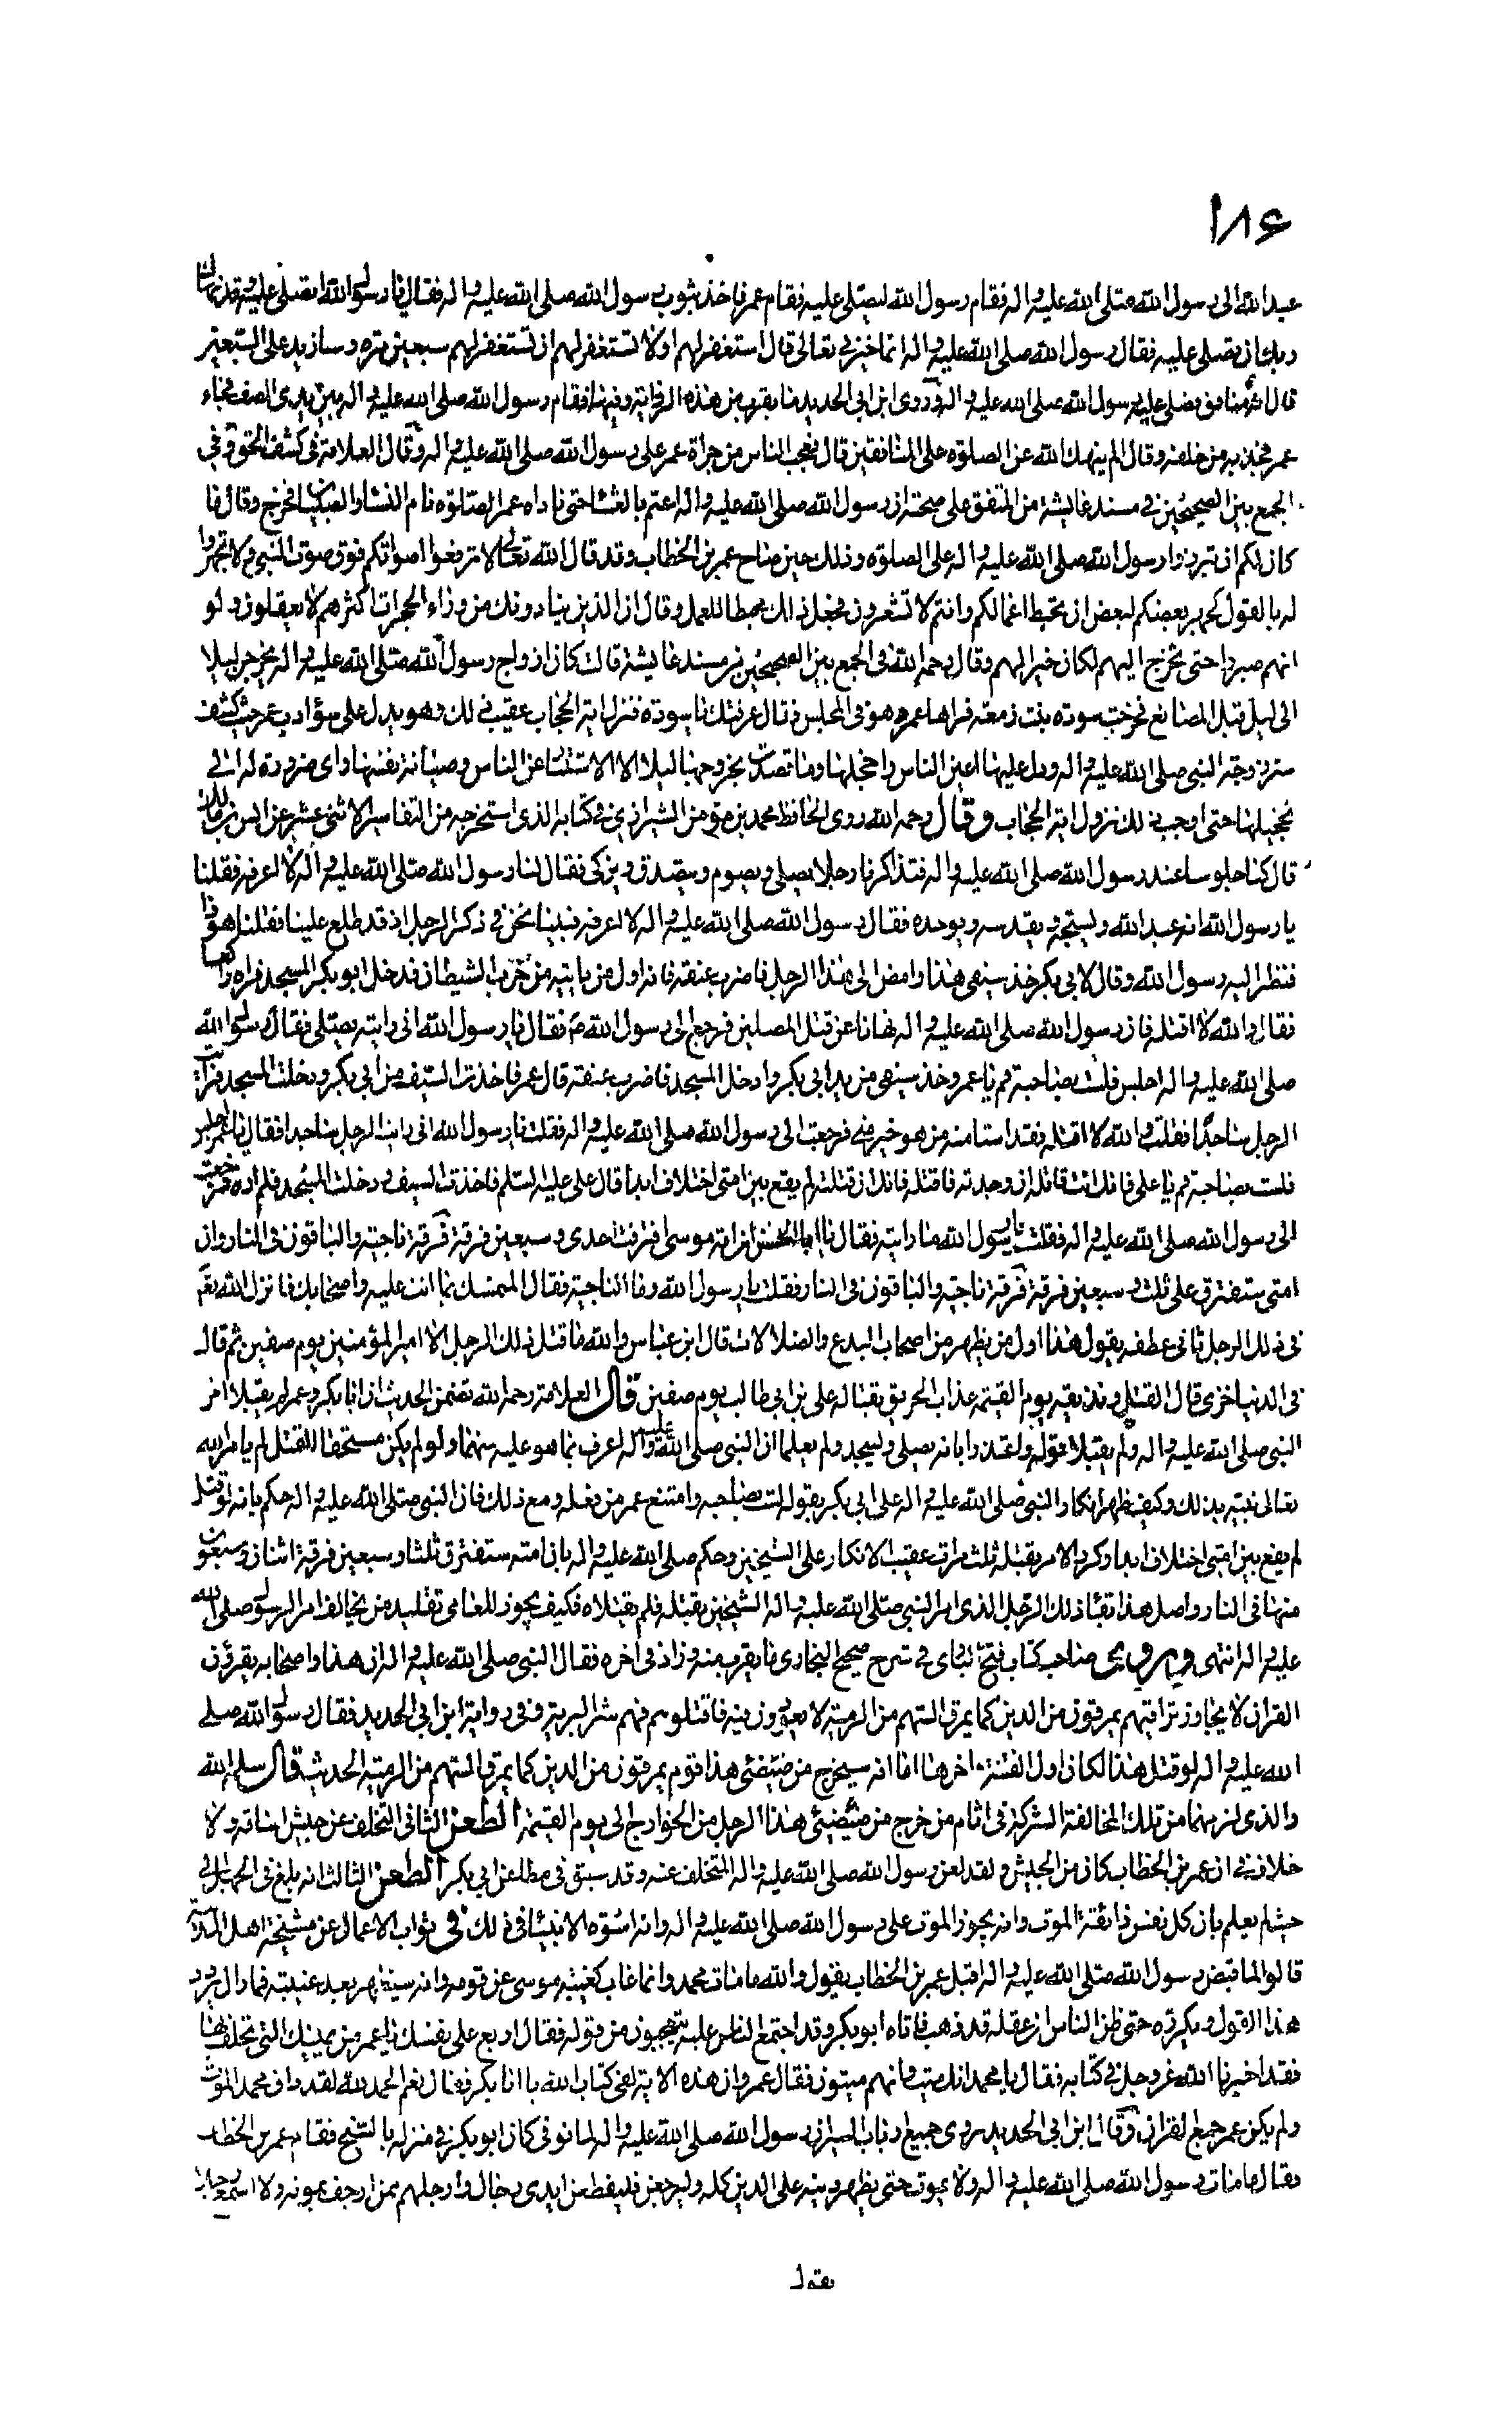 ١٨۶
عبد الله الى رسول الله صلى الله عليه واله فقام رسول الله ليصلى عليه فقام عمر فاخذ بثوب رسول الله صلى الله عليه واله فقال يا رسول الله اتصلى عليه وقد نهاك
ربك ان تصلى عليه فقال رسول الله صلى الله عليه واله انما خيرنى تعالى قال استغفر لهم اولا تستغفر لهم ان تستغفر لهم سبعين مرة وسازيد على السبعين
قال انه منافق فصلى عليه رسول الله صلى الله عليه واله وروى ابن ابى الحديد ما يقرب من هذه الرواية وفيها فقام رسول الله صلى الله عليه واله بين يدى الصف فجاء
عمر فجذبه من خلفه وقال الم ينهك الله عن الصلوة على المنافقين قال فعجب الناس من جراة عمر على رسول الله صلى الله عليه واله وقال العلامة فى كشف الحق وفى
الجمع بين الصحيحين فى مسند عايشة من المتفق على صحته ان رسول الله صلى الله عليه واله اعتم بالعشا حتى ناداه عمر الصلوة نام النسا والصبيان فخرج وقال ما
كان لكم ان تبرزوا رسول الله صلى الله عليه واله على الصلوة وذلك حين صاح عمر بن الخطاب وقد قال الله تعالى لا ترفعوا اصواتكم فوق صوت النبى ولا تجهروا
له بالقول كجهر بعضكم لبعض ان تحبط اعمالكم وانتم لا تشعرون فجعل ذلك محبطا للعمل وقال ان الذين ينادونك من وراء الحجرات اكثرهم لا يعقلون ولو
انهم صبروا حتى تخرج اليهم لكان خيرا لهم وقال رحمه الله فى الجمع بين الصحيحين من مسند عايشة قالت كان ازواج رسول الله صلى الله عليه واله يخرجن ليلا
الى ليل قبل المصانع فخرجت سوده بنت زمعه فراها عمر وهو فى المجلس فقال عرفتك يا سودة فنزل اية الحجاب عقيب ذلك وهو يدل على سؤ ادب عمر حيث كشف
ستر زوجة النبى صلى الله عليه واله ودل عليها اعين الناس واخجلها وما قصدت بخروجها ليلا الا الاستتار عن الناس وصيانة نفسها واى ضرورة له الى
تخجيلها حتى اوجب ذلك نزول اية الحجاب وقال رحمه الله روى الحافظ محمد بن مؤمن الشيرازى فى كتابه الذى استخرجه من التفاسير الاثنى عشر عن انس بن مالك
قال كنا جلوسا عند رسول الله صلى الله عليه واله فتذاكرنا رجلا يصلى ويصوم ويتصدق ويزكى فقال لنا رسول الله صلى الله عليه واله لا اعرفه فقلنا
يا رسول الله انه عبد الله ويسبحه ويقدسه ويوحده فقال رسول الله صلى الله عليه واله لا اعرفه فبينا نحن فى ذكر الرجل اذ قد طلع علينا فقلنا هو ذا
فنظر اليه رسول الله وقال لابى بكر خذ سيفى هذا وامض الى هذا الرجل فاضرب عنقه فانه اول من ياتيه من حزب الشيطان فدخل ابو بكر المسجد فراه راكعا
فقال والله لا اقتله فان رسول الله صلى الله عليه واله نهانا عن قتل المصلين فرجع الى رسول الله ص فقال يا رسول الله انى رايته يصلى فقال رسول الله
صلى الله عليه واله اجلس فلست بصاحبه قم يا عمر وخذ سيفى من يد ابى بكر وادخل المسجد فاضرب عنقه قال عمر فاخذت السيف من ابى بكر ودخلت المسجد فرايت
الرجل ساجدا فقلت والله لا اقتله فقد استامنه من هو خير منى فرجعت الى رسول الله صلى الله عليه واله فقلت يا رسول الله انى رايت الرجل ساجدا فقال يا عمر اجلس
فلست بصاحبه قم يا على فانك انت قاتله ان وجدته فاقتله فانك ان قتلته لم يقع بين امتى اختلاف ابدا قال على عليه السلم فاخذت السيف ودخلت المسجد فلم اره فرجعت
الى رسول الله صلى الله عليه واله فقلت يا رسول الله ما رايته فقال يا ابا الحسن ان امة موسى افترقت احدى وسبعين فرقة فرقة ناجية والباقون فى النار وان
امتى ستفترق على ثلث وسبعين فرقة فرقة ناجية والباقون فى النار فقلت يا رسول الله وما الناجية فقال المتمسك بما انت عليه واصحابك فانزل الله تعالى
فى ذلك الرجل ثانى عطفه يقول هذا اول من يظهر من اصحاب البدع والضلالات قال ابن عباس والله ما قتل ذلك الرجل الا امير المؤمنين يوم صفين ثم قال له
فى الدنيا خزى قال القتل ونذيقه يوم القيمة عذاب الحريق بقتاله على بن ابى طالب يوم صفين قال العلامة رحمه الله تضمن الحديث ان ابا بكر وعمر لم يقبلا امر
النبى صلى الله عليه واله ولم يقبلا قوله واعتذرا بانه يصلى ويسجد ولم يعلما ان النبى صلى الله عليه واله اعرف بما هو عليه منهما ولو لم يكن مستحقا للقتل لم يامر الله
تعالى نبيه بذلك وكيف ظهر انكار النبى صلى الله عليه واله على ابى بكر بقوله لست بصاحبه وامتنع عمر من قتله ومع ذلك فان النبى صلى الله عليه واله حكم بانه لو قتل
لم يقع بين امتى اختلاف ابدا وكرر الامر بقتله ثلث مرات عقيب الانكار على الشيخين وحكم صلى الله عليه واله بان امته ستفترق ثلثا وسبعين فرقة اثنان وسبعون
منها فى النار واصل هذا بقاء ذلك الرجل الذى امر النبى صلى الله عليه واله الشيخين بقتله فلم يقتلاه فكيف يجوز للعامى تقليد من يخالف امر الرسول صلى الله
عليه واله انتهى وروى صاحب كتاب فتح البارى فى شرح صحيح البخارى ما يقرب منه وزاد فى اخره فقال النبى صلى الله عليه واله ان هذا واصحابه يقرؤن
القران لا يجاوز تراقيهم يمرقون من الدين كما يمرق السهم من الرمية لا يعودون فيه فاقتلوهم فهم شر البرية وفى رواية ابن ابى الحديد فقال رسول الله صلى
الله عليه واله لو قتل هذا لكان اول الفتنة واخرها اما انه سيخرج من ضئضئ هذا قوم يمرقون من الدين كما يمرق السهم من الرمية الحديث قال سلمه الله
والذى لزمهما من تلك المخالفة الشركة فى اثام من خرج من ضئضئ هذا الرجل من الخوارج الى يوم القيمة الطعن الثانى التخلف عن جيش اسامة ولا
خلاف فى ان عمر بن الخطاب كان من الجيش ولقد لعن رسول الله صلى الله عليه واله المتخلف عنه وقد سبق فى مطاعن ابى بكر الطعن الثالث انه بلغ فى الجهل الى
حيث لم يعلم بان كل نفس ذائقة الموت وانه يجوز الموت على رسول الله صلى الله عليه واله وانه اسوة الانبياء فى ذلك فى ثواب الاعمال عن مشيخة اهل المدينة
قالوا لما قبض رسول الله صلى الله عليه واله قبل عمر بن الخطاب يقول والله ما مات محمد وانما غاب كغيبة موسى عن قومه وانه سيظهر بعد غيبته فما زال يردد
هذا القول ويكرره حتى ظن الناس ان عقله قد ذهب فاتاه ابو بكر وقد اجتمع الناس عليه يتعجبون من قوله فقال اربع على نفسك يا عمر من يمينك التى تحلف بها
فقد اخبرنا الله عز وجل فى كتابه فقال يا محمد انك ميت وانهم ميتون فقال عمر وان هذه الاية لفى كتاب الله يا ابا بكر فقال نعم الحمد لله لقد ذاق محمد الموت
ولم يكن عمر جمع القران وقال ابن ابى الحديد روى جميع ارباب السير ان رسول الله صلى الله عليه واله لما توفى كان ابو بكر فى منزله بالسنح فقام عمر بن الخطاب
فقال ما مات رسول الله صلى الله عليه واله ولا يموت حتى يظهر دينه على الدين كله وليرجعن فليقطعن ايدى رجال وارجلهم ممن ارجف بموته ولا اسمع رجلا
يقول